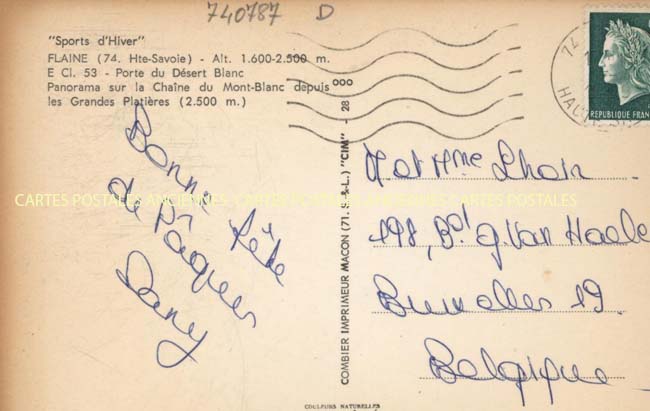 740787 D
"Sports d'Hiver"
FLAINE (74. Hte-Savoie) - Alt. 1.600-2.500 m.
E Cl. 53 - Porte du Désert Blanc
Panorama sur la Chaîne du Mont-Blanc depuis
les Grandes Platières (2.500 m.)
Bonne fête
de Pâques
Dany
COMBIER IMPRIMEUR MACON (71. S.-&-L.) "CIM" - 28
COULEURS NATURELLES
74
HAUTE
REPUBLIQUE FRAN
M et Mme
198, Bd G. Van Haele
Bruxelles 19
Belgique
CARTES POSTALES ANCIENNES CARTES POSTALES ANCIENNES CARTES POSTALES